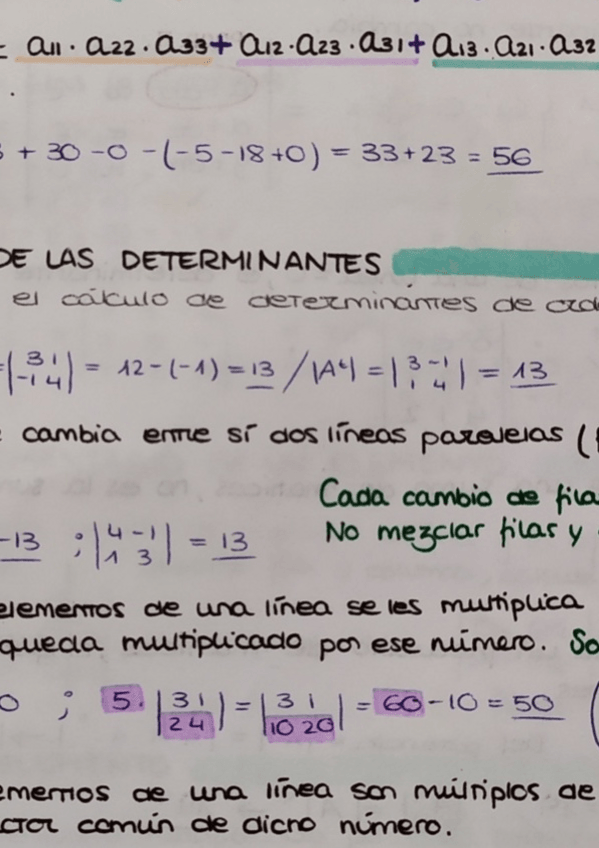 = a11 · a22 · a33 + a12 · a23 · a31 + a13 · a21 · a32
.
+ 30 - 0 - (-5 - 18 + 0) = 33 + 23 = 56
DE LAS DETERMINANTES
el cálculo de determinantes de
= |3 1; -1 4| = 12 - (-1) = 13 / |Aᵗ| = |3 -1; 1 4| = 13
cambia entre sí dos líneas paralelas (
Cada cambio de fila
-13 ; |4 -1; 1 3| = 13 No mezclar filas y
elementos de una línea se les multiplica
queda multiplicado por ese número. So
0 ; 5 · |3 1; 2 4| = |3 1; 10 20| = 60 - 10 = 50 (
ementos de una línea son múltiplos de
ctor común de dicho número.